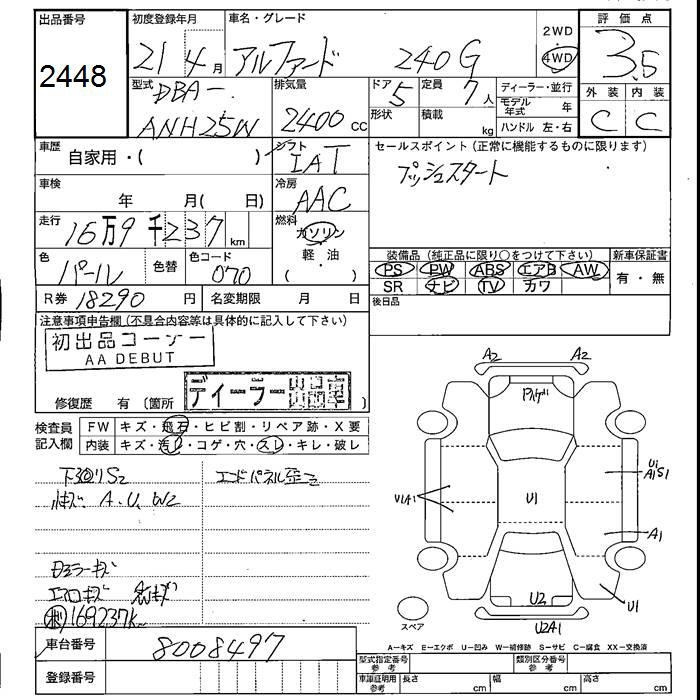 出品番号 初度登録年月 車名・グレード 2WD 評価点
2448 21年4月 アルファード 240G 4WD 3.5
型式 排気量 ドア 定員 ディーラー・並行 外装 内装
DBA- 5 7人 モデル年式 年 C C
ANH25W 2400cc 形状 積載 kg ハンドル 左・右
車歴 シフト セールスポイント(正常に機能するものに限ります)
自家用・( ) IAT プッシュスタート
車検 冷房
年 月( 日) AAC
走行 燃料
16万9千237km ガソリン
色 色替 色コード 軽・油 装備品(純正品に限り○をつけて下さい) 新車保証書
パール 070 ( ) PS PW ABS エアB AW 有・無
SR ナビ TV カワ
R券 18290円 名変期限 月 日 後日品
注意事項申告欄(不具合内容等は具体的に記入して下さい)
初出品コーナー
AA DEBUT
ディーラー出品車
修復歴 有(箇所 )
検査員記入欄 FW キズ・飛石・ヒビ割・リペア跡・X要
内装 キズ・汚レ・コゲ・穴・スレ・キレ・破レ
下回りS2 エンドパネル歪ミ
小キズ A.U.W2
ミラーキズ
エアロキズ
169237K
車台番号 8008497
登録番号
A2 A2
U1
A1S1
V1A1 U1
A1
U2 U1
スペア U2A1
A-キズ E-エクボ U-凹み W-補修跡 S-サビ C-腐食 XX-交換済
型式指定番号 参考 類別区分番号 参考
車庫証明用 参考 長さ cm 幅 cm 高さ cm